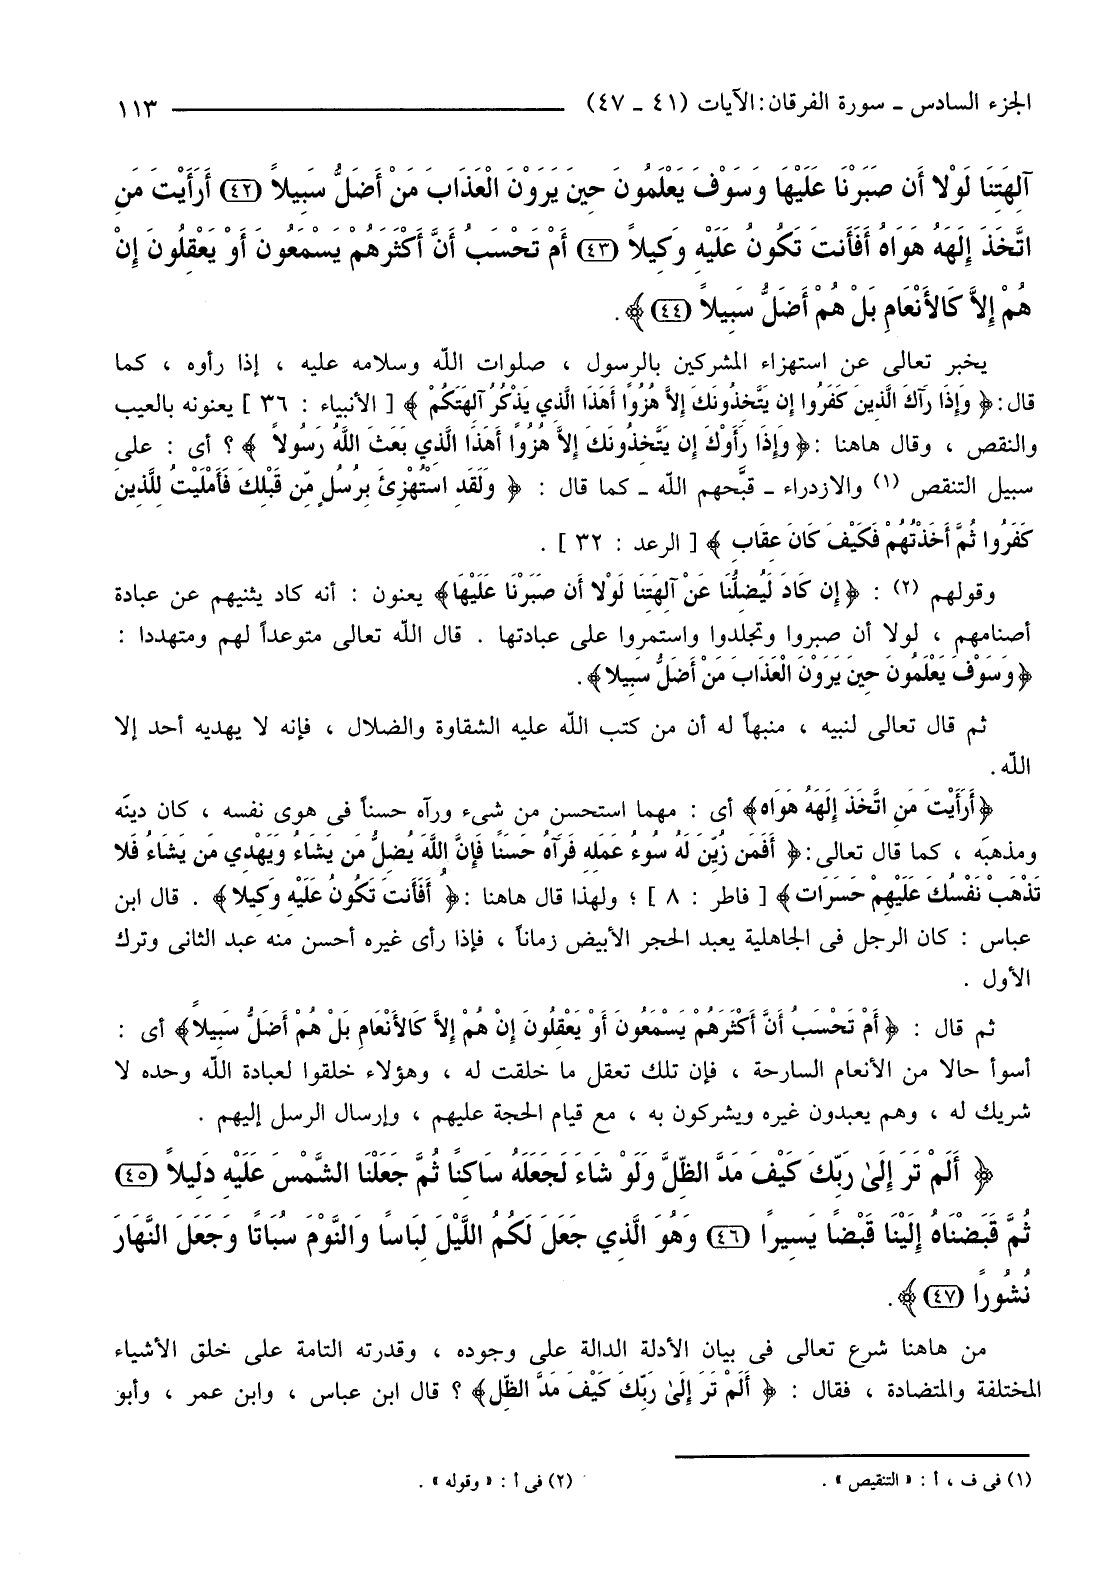 الجزء السادس - سورة الفرقان: الآيات (٤١ - ٤٧) ١١٣
آلِهَتِنَا لَوْلا أَن صَبَرْنَا عَلَيْهَا وَسَوْفَ يَعْلَمُونَ حِينَ يَرَوْنَ الْعَذَابَ مَنْ أَضَلُّ سَبِيلاً (٤٢) أَرَأَيْتَ مَنِ
اتَّخَذَ إِلَهَهُ هَوَاهُ أَفَأَنتَ تَكُونُ عَلَيْهِ وَكِيلاً (٤٣) أَمْ تَحْسَبُ أَنَّ أَكْثَرَهُمْ يَسْمَعُونَ أَوْ يَعْقِلُونَ إِنْ
هُمْ إِلاَّ كَالأَنْعَامِ بَلْ هُمْ أَضَلُّ سَبِيلاً (٤٤) ﴾ .
يخبر تعالى عن استهزاء المشركين بالرسول ، صلوات الله وسلامه عليه ، إذا رأوه ، كما
قال: ﴿ وَإِذَا رَآكَ الَّذِينَ كَفَرُوا إِن يَتَّخِذُونَكَ إِلاَّ هُزُوًا أَهَذَا الَّذِي يَذْكُرُ آلِهَتَكُمْ ﴾ [ الأنبياء : ٣٦ ] يعنونه بالعيب
والنقص ، وقال هاهنا : ﴿ وَإِذَا رَأَوْكَ إِن يَتَّخِذُونَكَ إِلاَّ هُزُوًا أَهَذَا الَّذِي بَعَثَ اللَّهُ رَسُولاً ﴾ ؟ أى : على
سبيل التنقص (١) والازدراء - قبَّحهم الله - كما قال : ﴿ وَلَقَدِ اسْتُهْزِئَ بِرُسُلٍ مِّن قَبْلِكَ فَأَمْلَيْتُ لِلَّذِينَ
كَفَرُوا ثُمَّ أَخَذْتُهُمْ فَكَيْفَ كَانَ عِقَابِ ﴾ [ الرعد : ٣٢ ] .
وقولهم (٢) : ﴿ إِن كَادَ لَيُضِلُّنَا عَنْ آلِهَتِنَا لَوْلا أَن صَبَرْنَا عَلَيْهَا﴾ يعنون : أنه كاد يثنيهم عن عبادة
أصنامهم ، لولا أن صبروا وتجلدوا واستمروا على عبادتها . قال الله تعالى متوعداً لهم ومتهددا :
﴿وَسَوْفَ يَعْلَمُونَ حِينَ يَرَوْنَ الْعَذَابَ مَنْ أَضَلُّ سَبِيلا﴾ .
ثم قال تعالى لنبيه ، منبهاً له أن من كتب الله عليه الشقاوة والضلال ، فإنه لا يهديه أحد إلا
الله .
﴿أَرَأَيْتَ مَنِ اتَّخَذَ إِلَهَهُ هَوَاه﴾ أى : مهما استحسن من شىء ورآه حسناً فى هوى نفسه ، كان دينَه
ومذهبَه ، كما قال تعالى: ﴿ أَفَمَن زُيِّنَ لَهُ سُوءُ عَمَلِهِ فَرَآهُ حَسَنًا فَإِنَّ اللَّهَ يُضِلُّ مَن يَشَاءُ وَيَهْدِي مَن يَشَاءُ فَلا
تَذْهَبْ نَفْسُكَ عَلَيْهِمْ حَسَرَات﴾ [ فاطر : ٨ ] ؛ ولهذا قال هاهنا : ﴿ أَفَأَنتَ تَكُونُ عَلَيْهِ وَكِيلا﴾ . قال ابن
عباس : كان الرجل فى الجاهلية يعبد الحجر الأبيض زماناً ، فإذا رأى غيره أحسن منه عبد الثانى وترك
الأول .
ثم قال : ﴿ أَمْ تَحْسَبُ أَنَّ أَكْثَرَهُمْ يَسْمَعُونَ أَوْ يَعْقِلُونَ إِنْ هُمْ إِلاَّ كَالأَنْعَامِ بَلْ هُمْ أَضَلُّ سَبِيلاً﴾ أى :
أسوأ حالا من الأنعام السارحة ، فإن تلك تعقل ما خلقت له ، وهؤلاء خلقوا لعبادة الله وحده لا
شريك له ، وهم يعبدون غيره ويشركون به ، مع قيام الحجة عليهم ، وإرسال الرسل إليهم .
﴿ أَلَمْ تَرَ إِلَىٰ رَبِّكَ كَيْفَ مَدَّ الظِّلَّ وَلَوْ شَاءَ لَجَعَلَهُ سَاكِنًا ثُمَّ جَعَلْنَا الشَّمْسَ عَلَيْهِ دَلِيلاً (٤٥)
ثُمَّ قَبَضْنَاهُ إِلَيْنَا قَبْضًا يَسِيرًا (٤٦) وَهُوَ الَّذِي جَعَلَ لَكُمُ اللَّيْلَ لِبَاسًا وَالنَّوْمَ سُبَاتًا وَجَعَلَ النَّهَارَ
نُشُورًا (٤٧) ﴾ .
من هاهنا شرع تعالى فى بيان الأدلة الدالة على وجوده ، وقدرته التامة على خلق الأشياء
المختلفة والمتضادة ، فقال : ﴿ أَلَمْ تَرَ إِلَىٰ رَبِّكَ كَيْفَ مَدَّ الظِّل﴾ ؟ قال ابن عباس ، وابن عمر ، وأبو
(١) فى ف ، أ : « التنقيص » . (٢) فى أ : « وقوله » .